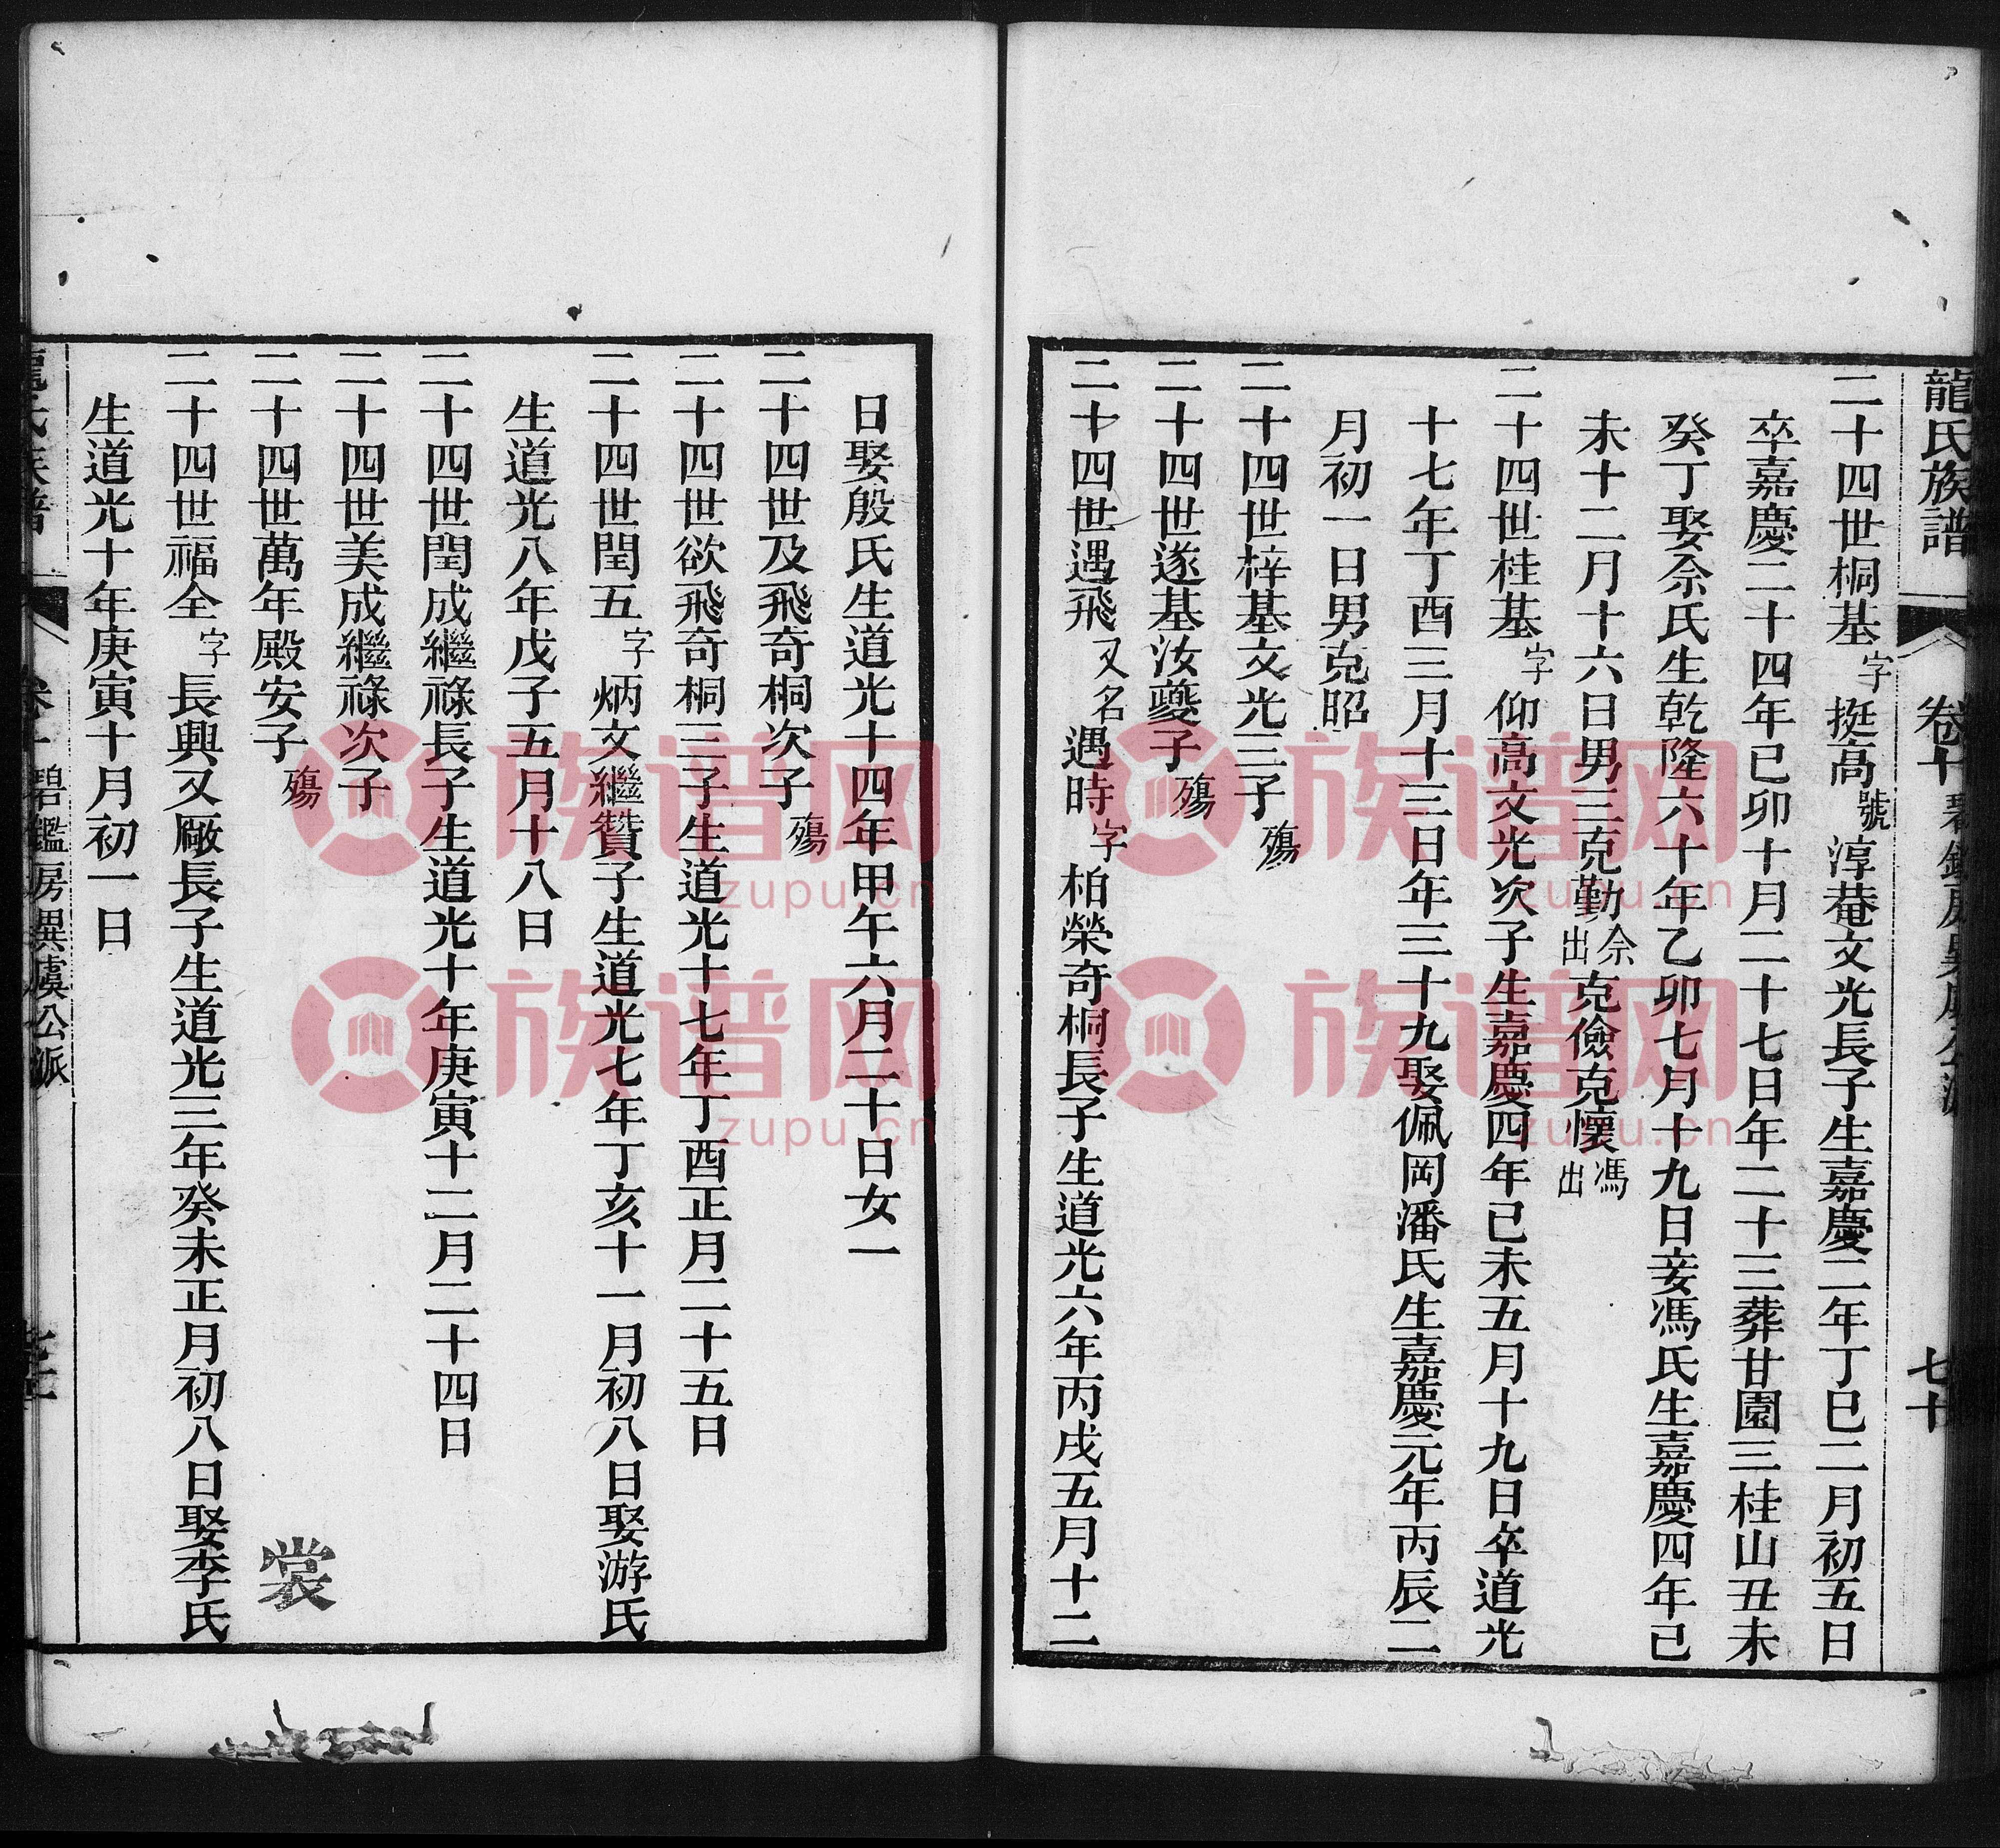 龍氏族譜 卷十 碧鑑房異虞公派 七十
二十四世桐基字挺高號淳菴文光長子生嘉慶二年丁巳二月初五日
卒嘉慶二十四年己卯十月二十七日年二十三葬甘園三桂山丑未
癸丁娶佘氏生乾隆六十年乙卯七月十九日妾馮氏生嘉慶四年己
未十二月十六日男三克勤佘出克儉克懷馮出
二十四世桂基字仰高文光次子生嘉慶四年己未五月十九日卒道光
十七年丁酉三月十三日年三十九娶佩岡潘氏生嘉慶元年丙辰二
月初一日男克昭
二十四世梓基文光三子殤
二十四世遂基汝夔子殤
二十四世遇飛又名遇時字柏榮奇桐長子生道光六年丙戌五月十二
日娶殷氏生道光十四年甲午六月二十日女一
二十四世及飛奇桐次子殤
二十四世欲飛奇桐三子生道光十七年丁酉正月二十五日
二十四世閏五字炳文繼贊子生道光七年丁亥十一月初八日娶游氏
生道光八年戊子五月十八日
二十四世閏成繼祿長子生道光十年庚寅十二月二十四日
二十四世美成繼祿次子
二十四世萬年殿安子殤
裳
二十四世福全字長興又廠長子生道光三年癸未正月初八日娶李氏
生道光十年庚寅十月初一日
龍氏族譜 卷十 碧鑑房異虞公派
族谱网
zupu.cn
族谱网
zupu.cn
族谱网
zupu.cn
族谱网
zupu.cn